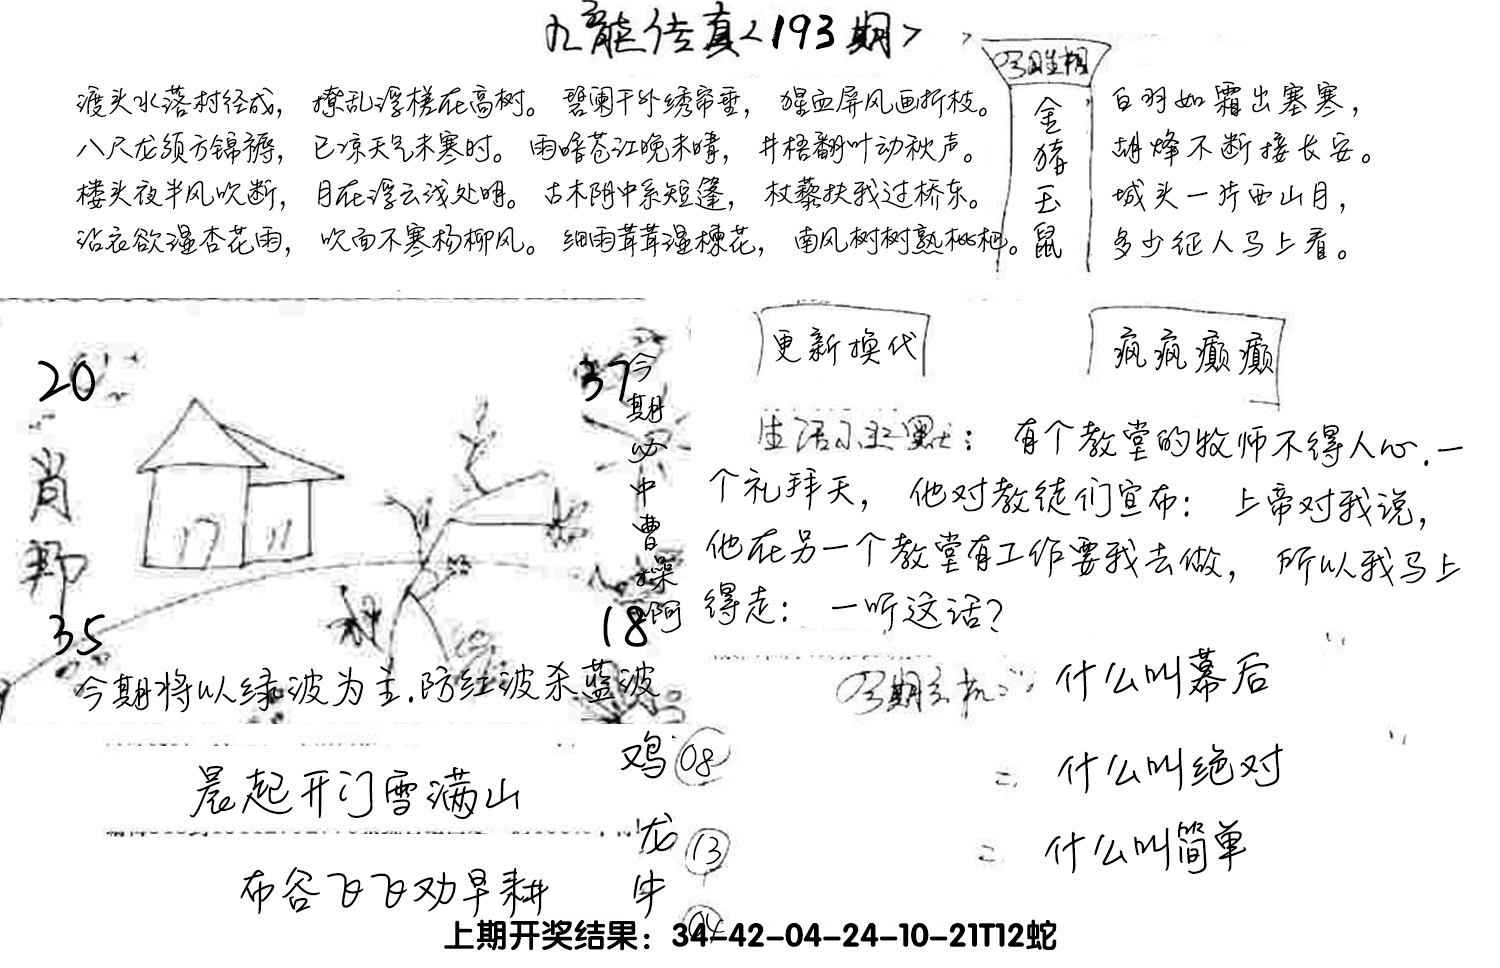 九龙传真<193期>
渡头水落村径成，撩乱浮槎在高树。碧阑干外绣帘垂，猩血屏风画折枝。
八尺龙须方锦褥，已凉天气未寒时。雨暗苍江晚未晴，井梧翻叶动秋声。
楼头夜半风吹断，月在浮云浅处明。古木阴中系短篷，杖藜扶我过桥东。
沾衣欲湿杏花雨，吹面不寒杨柳风。细雨茸茸湿楝花，南风树树熟枇杷。
金猪玉鼠
白羽如霜出塞寒，
胡烽不断接长安。
城头一片西山月，
多少征人马上看。
20
37
肖
35
18
今期必中曹操啊
今期将以绿波为主.防红波杀蓝波
更新换代
疯疯癫癫
生活小幽默：有个教堂的牧师不得人心.一
个礼拜天，他对教徒们宣布：上帝对我说，
他在另一个教堂有工作要我去做，所以我马上
得走：一听这话？
今期玄机：什么叫幕后
= 什么叫绝对
= 什么叫简单
晨起开门雪满山
布谷飞飞劝早耕
鸡 08
龙 13
牛
上期开奖结果：34-42-04-24-10-21T12蛇